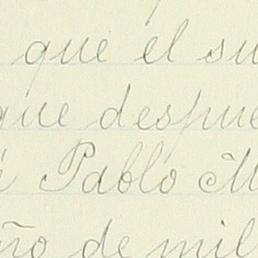 que el su
que despue
é Pablo M
ño de mil